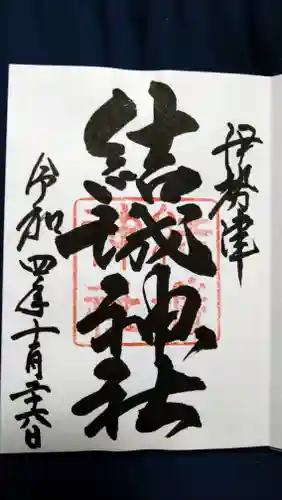 伊勢津
結城神社
令和四年十月二十六日